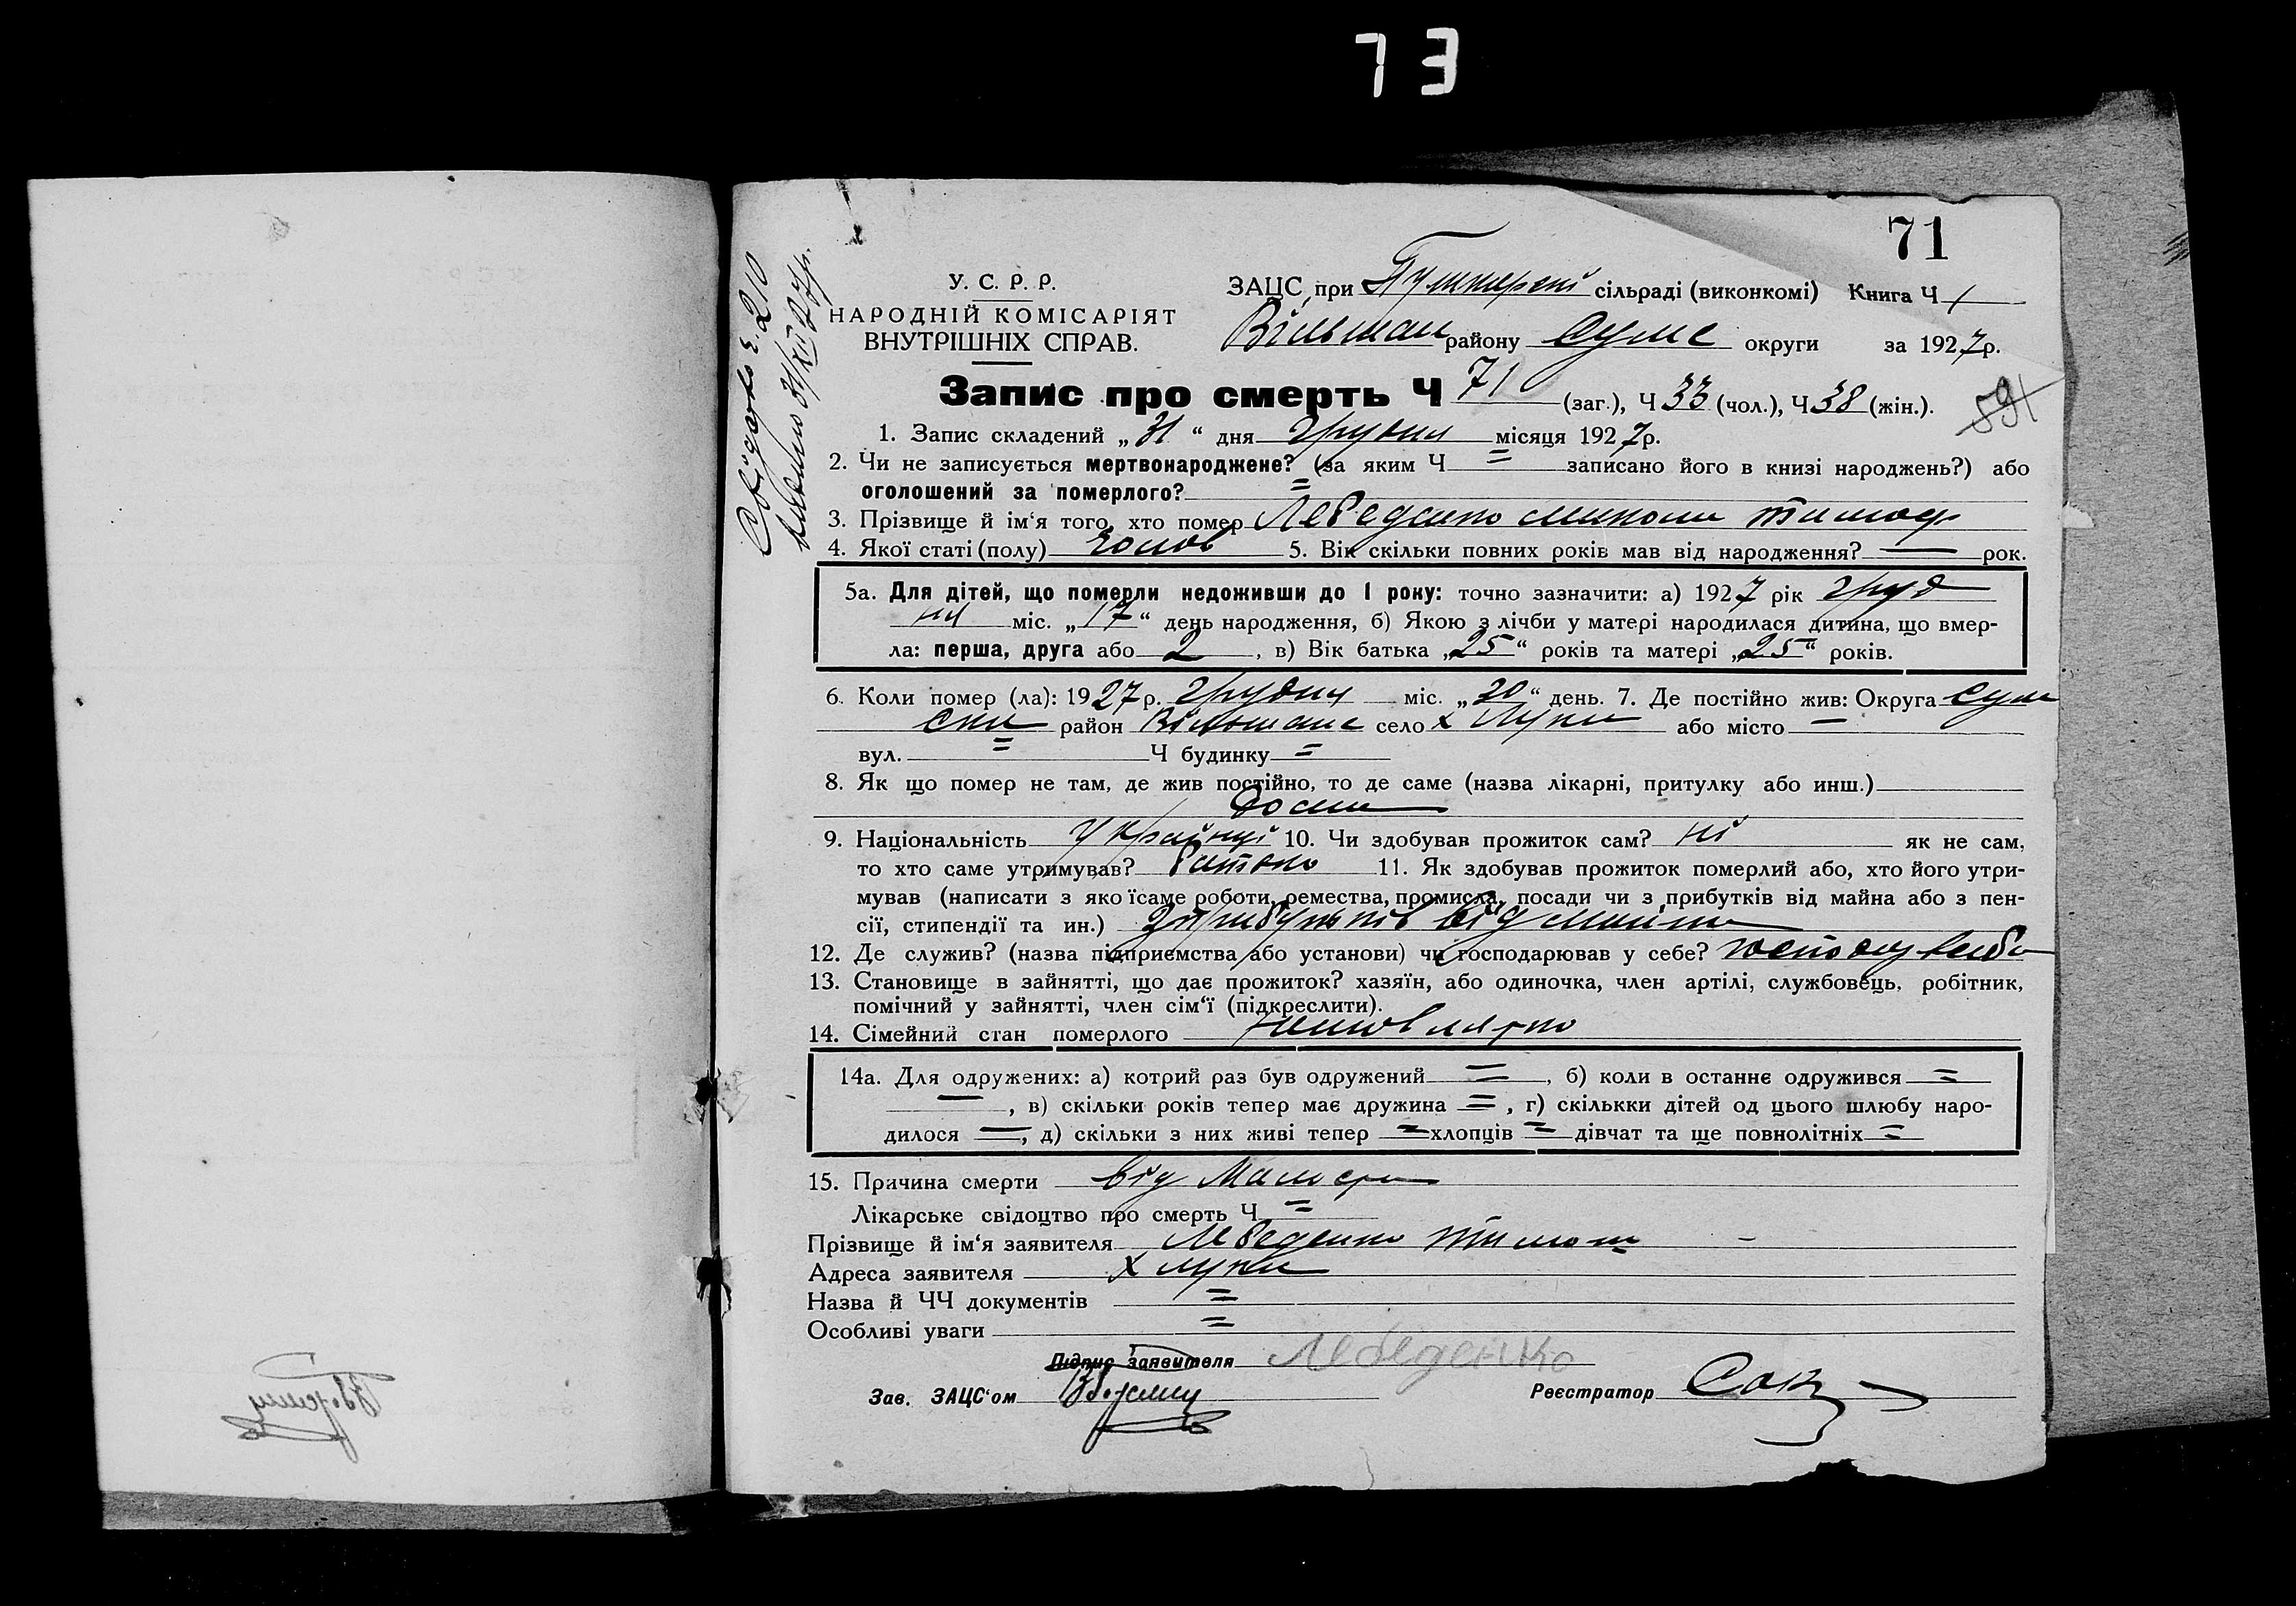 73
71
У. С. Р. Р.
НАРОДНІЙ КОМІСАРІЯТ
ВНУТРІШНІХ СПРАВ.
ЗАЦС при сільраді (виконкомі) Книга Ч 1
Вільшан району Сумс округи за 1927 р.
Запис про смерть Ч 71 (заг.), Ч 33 (чол.), Ч 38 (жін.).
591
1. Запис складений „31“ дня грудня місяця 1927 р.
2. Чи не записується мертвонароджене? (за яким Ч = записано його в книзі народжень?) або
оголошений за померлого? =
3. Прізвище й ім‘я того, хто помер Лебеденко Микола Тимоф
4. Якої статі (полу) чолов 5. Вік скільки повних років мав від народження? — рок.
5а. Для дітей, що померли недоживши до 1 року: точно зазначити: а) 1927 рік груд
ня міс. „17“ день народження, б) Якою з лічби у матері народилася дитина, що вмер-
ла: перша, друга або 2, в) Вік батька „25“ років та матері „25“ років.
6. Коли помер (ла): 1927 р. грудня міс. „30“ день. 7. Де постійно жив: Округа Сум
ска район Вільшанс село х Луки або місто —
вул. = Ч будинку =
8. Як що помер не там, де жив постійно, то де саме (назва лікарні, притулку або инш.)
дома
9. Національність Україньці 10. Чи здобував прожиток сам? ні як не сам,
то хто саме утримував? батько 11. Як здобував прожиток померлий або, хто його утри-
мував (написати з яко їсаме роботи, ремества, промисла, посади чи з прибутків від майна або з пен-
сії, стипендії та ин.) з прибутків від майна
12. Де служив? (назва підприємства або установи) чи господарював у себе?
13. Становище в зайнятті, що дає прожиток? хазяїн, або одиночка, член артілі, службовець, робітник,
помічний у зайнятті, член сім‘ї (підкреслити).
14. Сімейний стан померлого немовлятко
14а. Для одружених: а) котрий раз був одружений =, б) коли в останнє одружився =
—, в) скільки років тепер має дружина =, г) скількки дітей од цього шлюбу наро-
дилося =, д) скільки з них живі тепер = хлопців = дівчат та ще повнолітніх =
15. Причина смерти від
Лікарське свідоцтво про смерть Ч =
Прізвище й ім‘я заявителя Лебеденко Тимош —
Адреса заявителя х Луки
Назва й ЧЧ документів =
Особливі уваги =
Підпис заявителя Лебеденко
Зав. ЗАЦС‘ом Реєстратор Сок